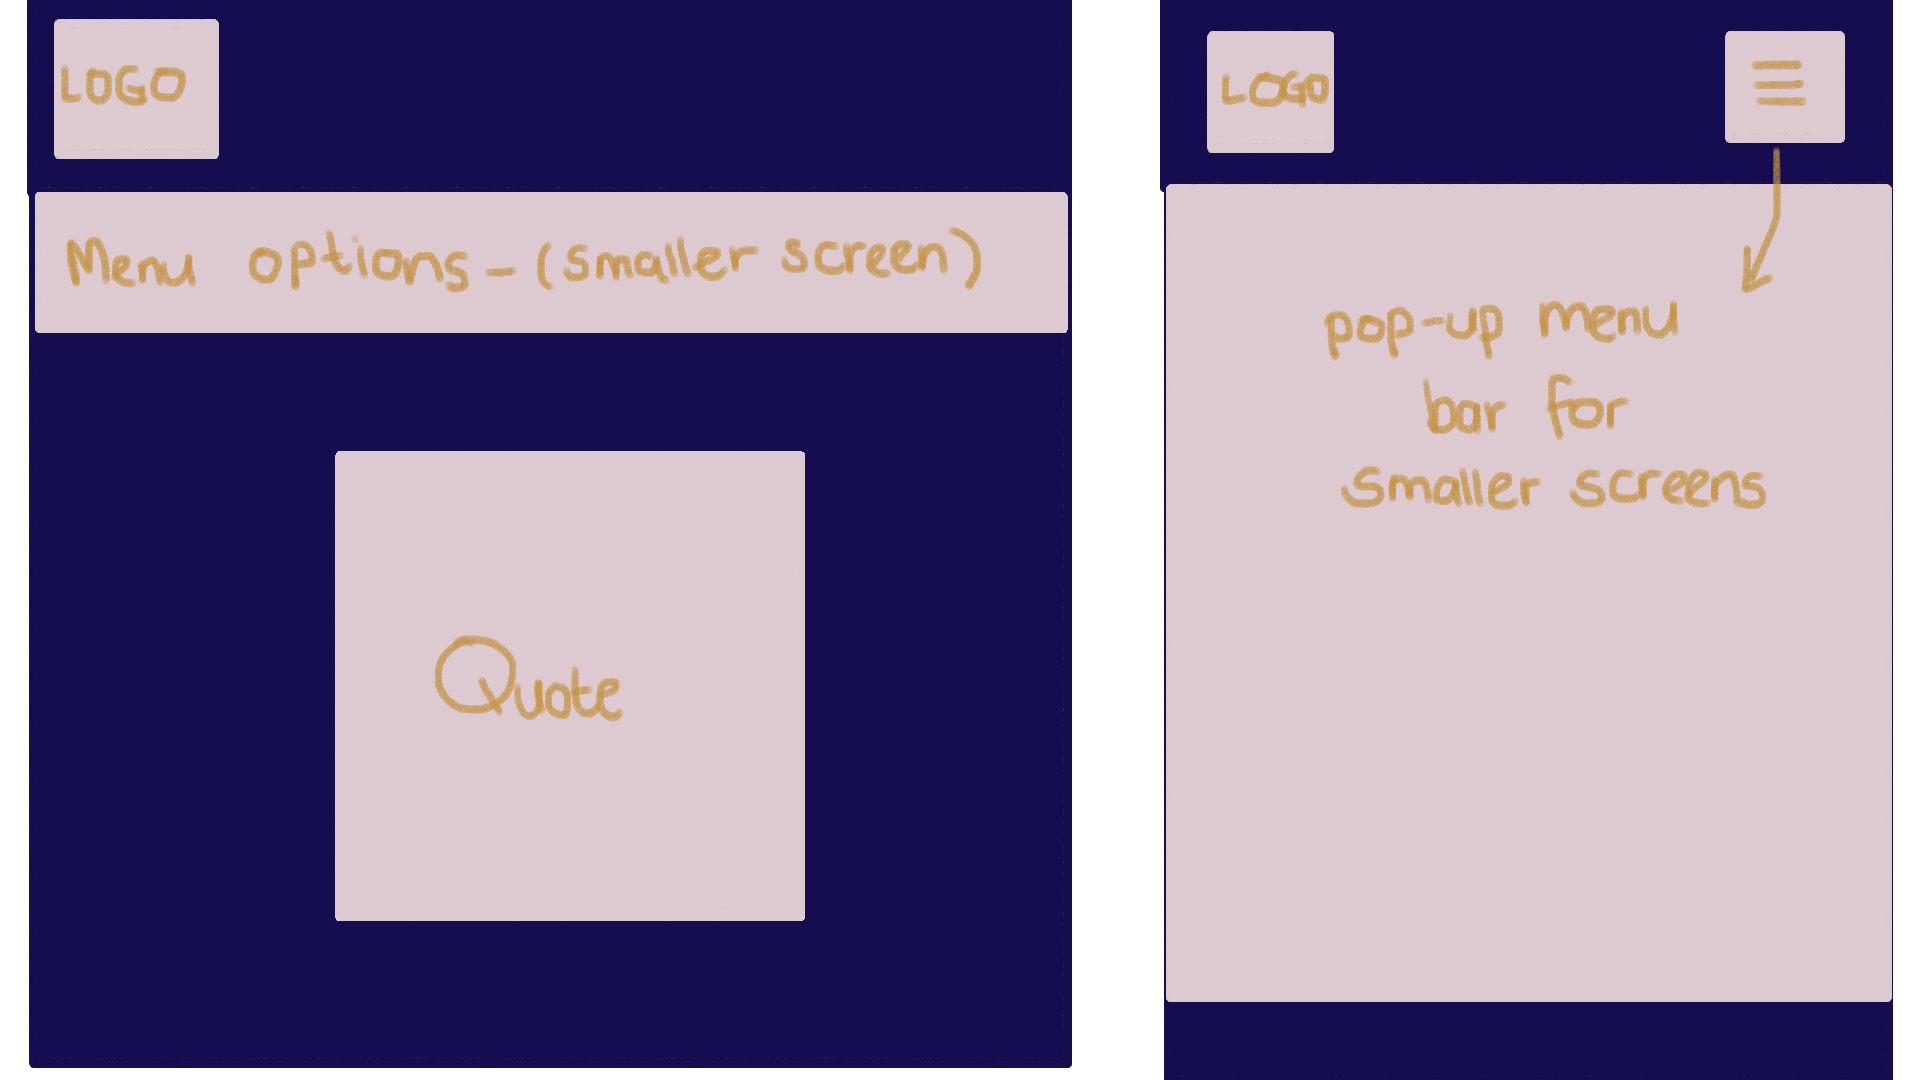 LOGO
Menu options - (smaller screen)
Quote
LOGO
pop-up menu
bar for
smaller screens